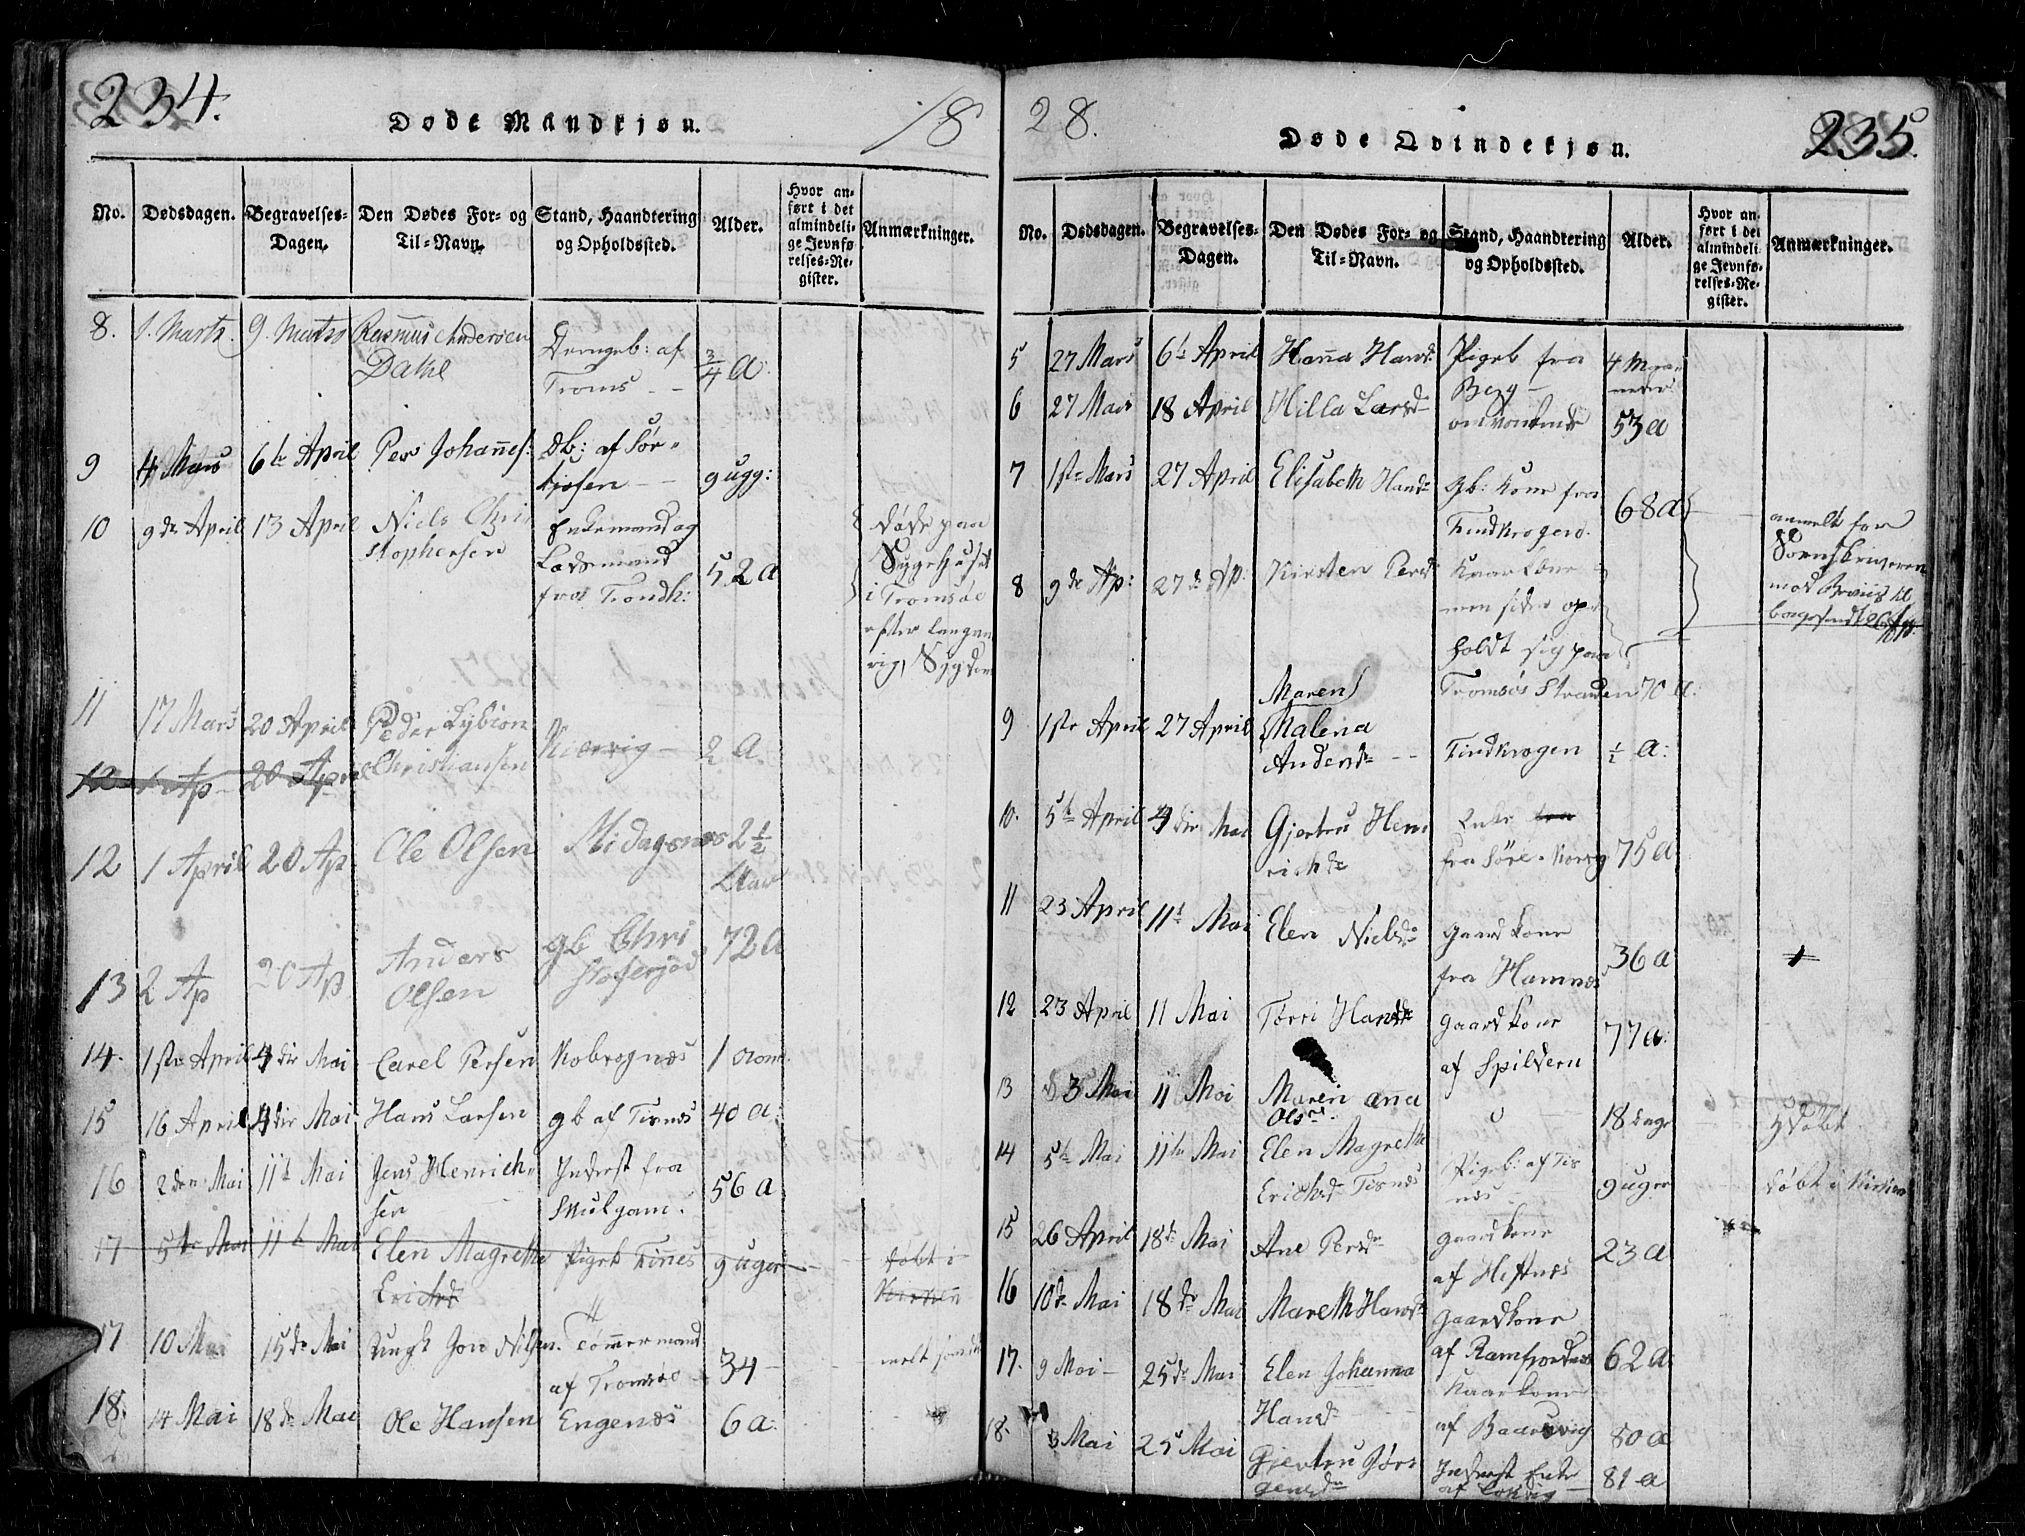 234.
Døde Mandkjøn.
18
No.
Dødsdagen.
Begravelses-
Dagen.
Den Dødes For- og
Til-Navn.
Stand, Haandtering
og Opholdssted.
Alder.
Hvor an-
ført i det
almindeli-
ge Jevnfø
relses-Re-
gister.
Anmærkninger.
8. 1. Marts. 9. Marts Rasmus Andersen
Dahl
Drengeb: af
Troms - - 3/4 a:
9 4 Mars 6te April Peer Johañes: Db: af Sør-
- - 9 ugg:
10 9de April 13 April Niels Chri
stophersen
Enkemand og
Losmand
fra Trondh: 52 a
døde paa
Sygehuset
i Tromsøe
efter langva
rig, Sygdom
11 17 Mars 20 April Peder Lybion
Christiansen
- 2 a
12 1 Ap 20 April
12 1 April 20 Ap Ole Olsen Midagsnes 2 1/2
13 2 Ap 20 Ap Anders
Olsen
gb Chri
72 a
14. 1ste April 4die Mai Carel Persen Kobrognæs 1
15 16 April 4die Mai Hans Larsen gb af Tisnæs 40 a:
16 2den Mai 11te Mai Jens Henrich-
sen
Inderst fra
Skulgam. 56 a
17 5te Mai 11te Mai Elen Magrethe
Erichsd
Pigeb Tisnes 9 uger
døbt i
Kirken
17 10 Mai 15de Mai Ungk Jon Nilsen. Tømmermand
af Tromsøe 34 -
18. 14 Mai 18de Mai Ole Hansen Engenæs 6 a:
28.
Døde Qvindekjøn.
235.
No.
Dødsdagen.
Begravelses-
Dagen.
Den Dødes For- og
Til-Navn.
Stand, Haandtering
og Opholdssted.
Alder.
Hvor an-
ført i det
almindeli-
ge Jevnfø-
relses-Re-
gister.
Anmærkninger.
5 27 Mars 6te April Hanna Hansd: Pigeb fra
Berg - 4 Maa
neder
6 27 Mars 18 April Hilla Larsd 53 a
7 1ste Mars 27 April Elisabeth Hansd gb: kone fra
Tindkrogen. 68 a
anmelt for
Sorenskriveren
8 9de Ap: 27de Ap: Kirsten Persd Kaarkone
men siden op-
holdt sig paa
Tromsøe Stranden 70 a:
9 1ste April 27 April Maren
Malena
Andersd - - Tindkrogen 1/2 a:
10. 5te April 4die Mai Gjertru Hen
richsd
Enke fra
fra Søre-Korsg 75 a
11 23 April 11te Mai Elen Nielsd gaardkone
fra Hamnæs 36 a
12 23 April 11 Mai Torri Hansd gaardkone
af Spildern 77 a:
13 3 Mai 11 Mai Maren ana
Olsd. 18 dage
Hdøbt
14 5te Mai 11te Mai Elen Magrethe
Erichsd Tisnæs
Pigeb: af Tis
næs - 9 uger
døbt i Kirken
15 26 April 18de Mai Ane Persd gaardkone
af Hestnæs 23 a
16 10de Mai 18de Mai Mareth Hansd gaardkone
af Ramfjordnæs 62 a:
17. 9 Mai - 25de Mai Elen Johanna
Hansd - -
Kaarkone
af Baarsvig 80 a
18. 3 Mai 25 Mai Gjertru Jør-
gensd
Inderst Enke
81 a